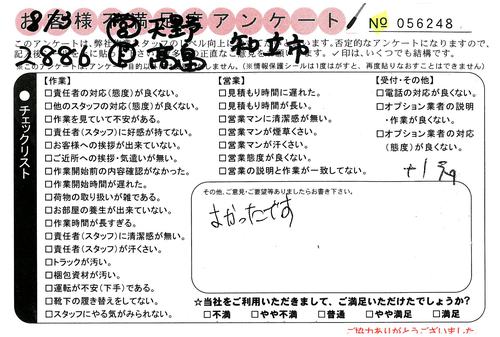 お客様不満足度アンケート
№ 056248
8/13
天野
知立市
2886
高重
このアンケートは、弊社
スタッフのレベル向上
否定的なアンケートになりますので、
です。✓印は、いくつでも結構です。
このアンケート
目的以外
(※情報保護シールは1度はがすと、再度貼りなおすことはできません)
チェックリスト
【作業】
□責任者の対応(態度)が良くない。
□他のスタッフの対応(態度)が良くない。
□作業を見ていて不安がある。
□責任者(スタッフ)に好感が持てない。
□お客様への挨拶が出来ていない。
□ご近所への挨拶・気遣いが無い。
□作業開始前の内容確認がなかった。
□作業開始時間が遅れた。
□荷物の取り扱いが雑である。
□お部屋の養生が出来ていない。
□作業時間が長すぎる。
□責任者(スタッフ)に清潔感が無い。
□責任者(スタッフ)が汗くさい。
□トラックが汚い。
□梱包資材が汚い。
□運転が不安(下手)である。
□靴下の履き替えをしてない。
□スタッフにやる気がみられない。
【営業】
□見積もり時間に遅れた。
□見積もり時間が長い。
□営業マンに清潔感が無い。
□営業マンが煙草くさい。
□営業マンが汗くさい。
□営業態度が良くない。
□営業の説明と作業が一致してない。
【受付・その他】
□電話の対応が良くない。
□オプション業者の説明
・作業が良くない。
□オプション業者の対応
(態度)が良くない。
その他、ご意見・ご要望等ありましたらお書き下さい。
よかったです
☆当社をご利用いただきまして、ご満足いただけたでしょうか?
□不満 □やや不満 □普通 □やや満足 □満足
ご協力ありがとうございました